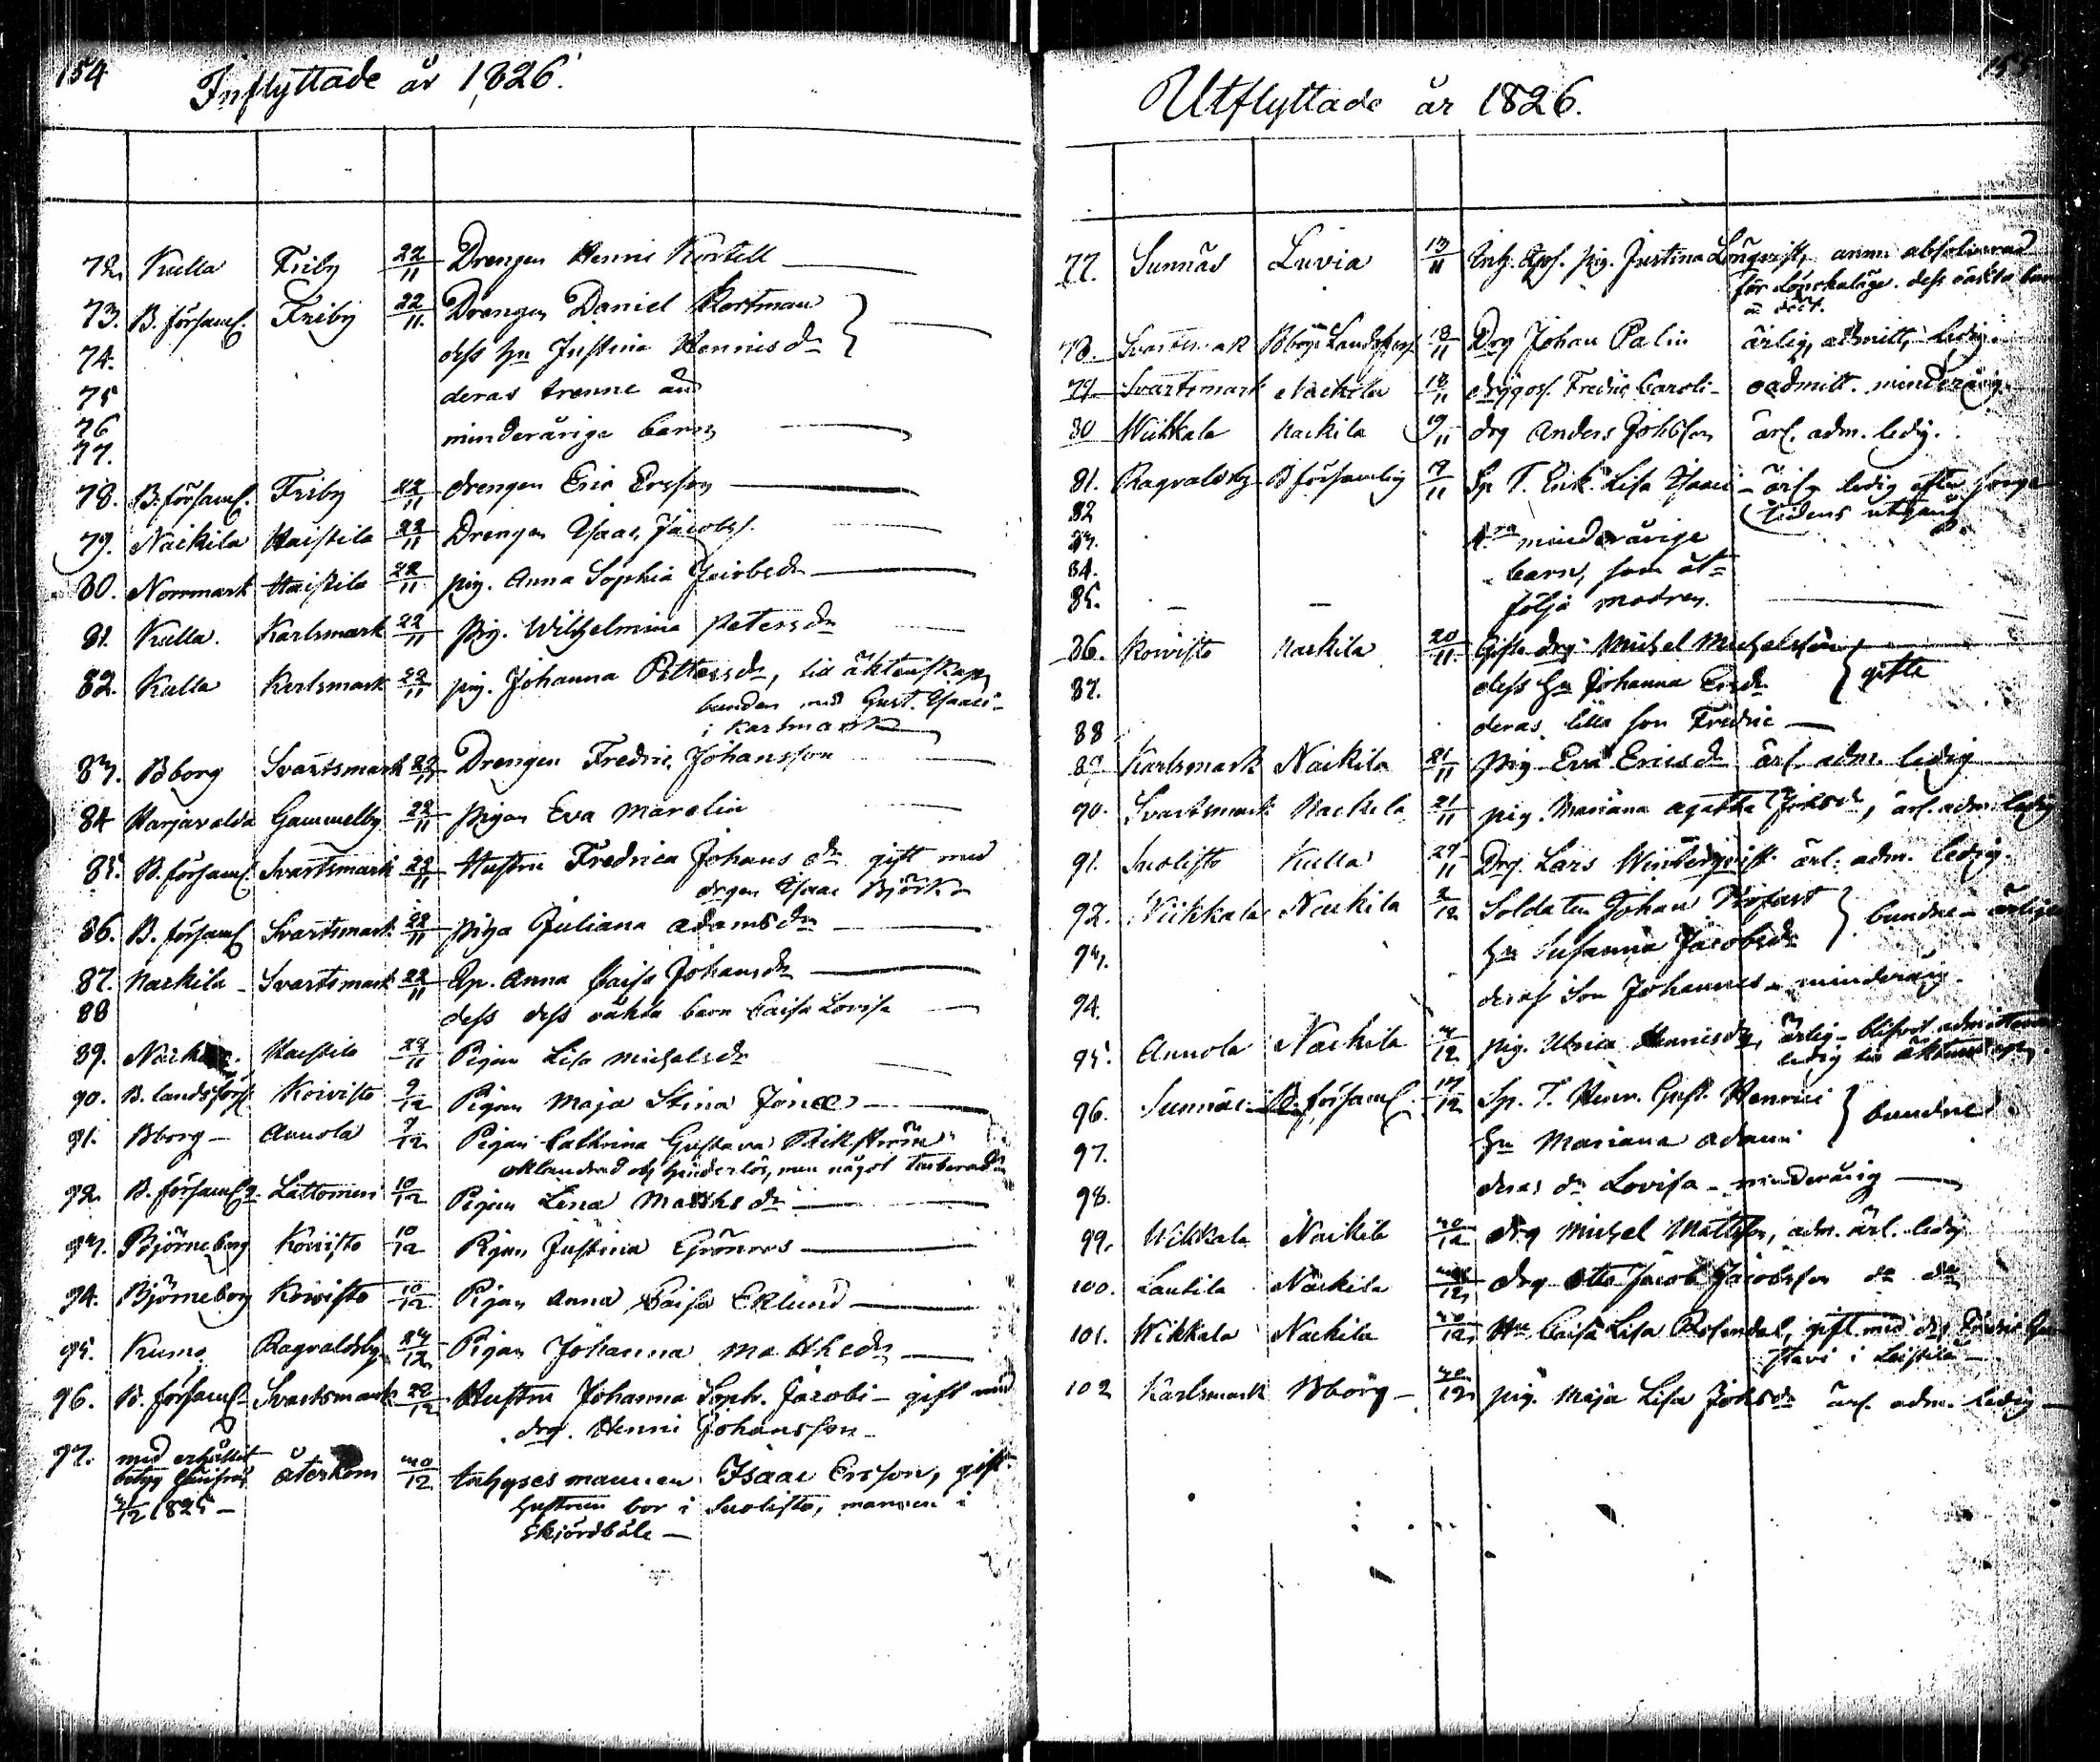 154
Inflyttade år 1826.
72. Kulla Friby 22/11 Drengen Henric Kortell
73. B. församl. Friby 22/11. Drengen Daniel Kortman
74. dess hu Justina Henricsdr
75 deras trenne
76 minderåriga barn
77.
78. B. församl. Friby 22/11 drengen Eric Ersson
79. Nackila Haistila 22/11 Drengen Isaac Jacobss.
80. Norrmark Haistila 22/11 pig. Anna Sophia Jacobsdr
81. Kulla. Karlsmark 22/11 Pig. Wilhelmina Petersdr
82. Kulla Karlsmark 22/11 pig. Johanna Pettersdr, till äktenskap
bunden med Gust. Isaaci
i Karlsmark
83. Bborg Svartsmark Drengen Fredric Johansson
84 Harjavalda Gammelby 22/11 pigan Eva Marolin
85. B. församl. Svartsmark Hustru Fredrica Johansdr gift med
drgen Isaac Björk
86. B. församl Svartsmark piga Juliana Adamsdr
87. Nackila Svartsmark Anna Caisa Johansdr
88 dess oäkta barn Caisa Lovisa
89. Haistila Pigan Lisa Michelsdr
90. B. landsförs. Koivisto 9/12 Pigan Maja Stina
91. Bborg Annola 9/12 Pigan Cathrina Gustava Rikström
oklandrad och hinderlös, men något
92. B. församl. Lattomeri 10/12 Pigan Lena Mathsdr
93. Björneborg Koivisto 10/12 Pigan Justina Grönroos
94. Björneborg Koivisto 10/12 Pigan Anna Caisa Eklund
95. Kumo Ragvaldsby Pigan Johanna Mathsdr
96. B. församl. Svartsmark Hustru Johanna Soph. Jacobi gift med
drg. Henric Johansson
97. med erhållit återkom 30/12 Inhysesmannen Isaac Ersson, gift
betyg härifrån hustrun bor i Suolisto, mannen i
1825 Skjördböle
155
Utflyttade år 1826.
77. Sunnäs Luvia 13/11 pig. Justina Lönqvist, absolverad
för lönskaläge. dess oäkta barn
78. Svartsmark Bborgs Landsförs 18/11 Drg Johan Palin ärlig, admitt, ledig.
79 Svartsmark Nackila 18/11 Fredric Caroli oadmitt. minderårig
80 Wikkala Nackila 19/11 drg Anders Johsson ärl. adm. ledig.
81. Ragvaldsby B församling 19/11 Enk. Lisa Isaaci ärl. ledig efter sorge
82 tidens utgång
83. minderåriga
84. barn, som åt-
85. följa modren.
86. Koivisto Nackila 20/11 Gifte drg Michel Michelsson
87. dess hu Johanna Ersdr gifte
88 deras lilla son Fredric
89 Karlsmark Nackila 21/11 pig Eva Ericsdr ärl. adm. ledig
90. Svartsmark Nackila 21/11 pig. Mariana Agatha Johsdr, ärl. adm. ledig
91. Suolisto Kulla 29/11 Drg. Lars Winterqvist ärl. adm. ledig.
92. Wikkala Nackila 2/12 Soldaten Johan Profast bundne ärlige
93. hu Susanna Jacobsdr
94. deras Son Johannes minderårig.
95. Annola Nackila 3/12 pig. Ulrica Henricsdr, ärlig
ledig till äktenskap.
96. Sunnäs B. församl. 17/12 Sp. T. Henr. Gust. Henrici bundne
97. hu Mariana Adami
98. deras dr Lovisa minderårig
99. Wikkala Nackila 30/12 drg Michel Mattsson, adm. ärl. ledig
100. Lautila Nackila drg Otto Jacob Jacobsson do do
101. Wikkala Nackila 30/12 Hu Caisa Lisa Rosendal, gift med drg Fredric Gu
stavi i Leistilä
102 Karlsmark Bborg 30/12 pig. Maja Lisa Johsdr ärl. adm. ledig